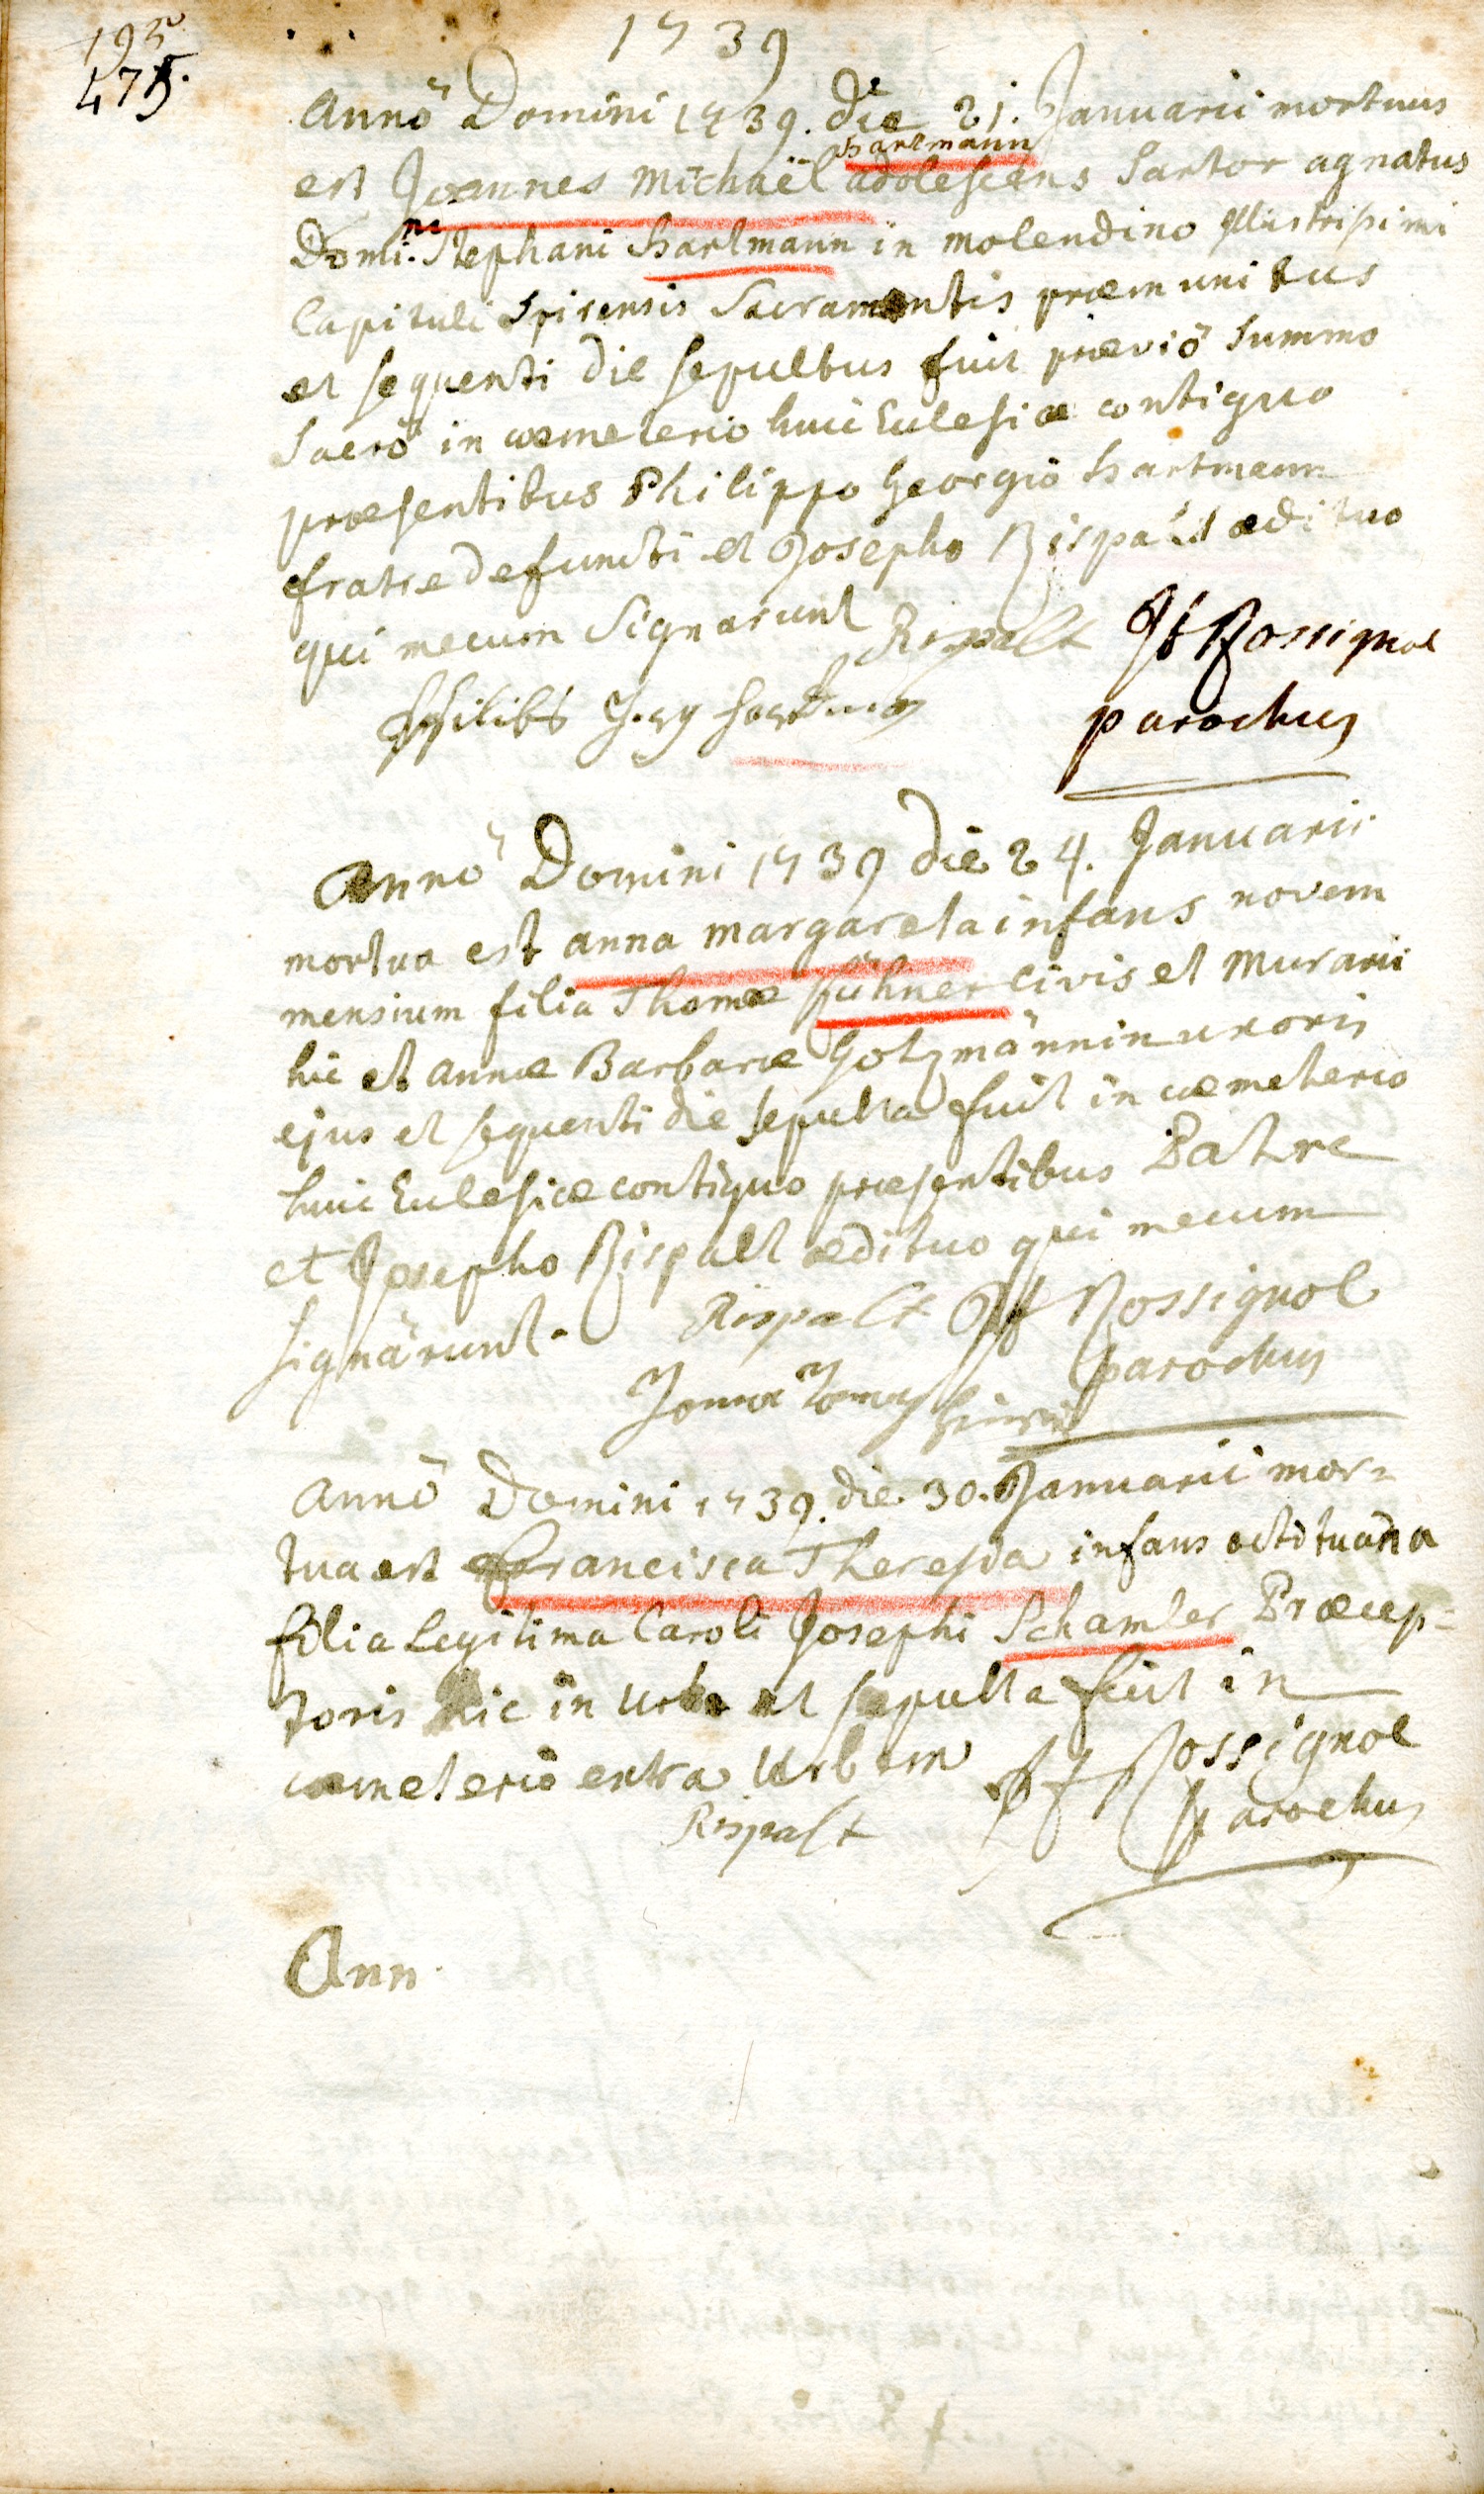 193
475.
1739
Annō Domini 1739. die 21. Januarii mortuus
hartmann
est Joannes Michaël adolescens Sartor agnatus
Domi.ni Stephani hartmann in molendino Illustrissimi
Capituli Spirensis Sacramentis præmunitus
et sequenti die sepultus fuit præviō summo
Sacrō in cœmeterio huic Ecclesiæ contiguo
præsentibus Philippo Georgiō hartmann
fratre defuncti et Josepho Rispalt ædituo
qui mecum Signarunt Rispalt JfRossignol
parochus
Annō Domini 1739 die 24. Januarii
mortua est anna margareta infans novem
mensium filia Thomæ hühner civis et Murarii
hic et annæ Barbaræ Gotzmännin uxoris
ejus et sequenti die sepulta fuit in cœmeterio
huic Ecclesiæ contiguo præsentibus Patre
et Josepho Rispalt ædituo qui mecum
signārunt. Rispalt Jf Rossignol
parochus
Annō Domini 1739. die 30. Januarii mor=
tua est Francisca Theresia infans
filia Legitima Caroli Josephi Schamler Præcep=
toris hic in Urbe et sepulta fuit in
cœmeteriō extra Urbem Jf Rossignol
Rispalt parochus
Ann